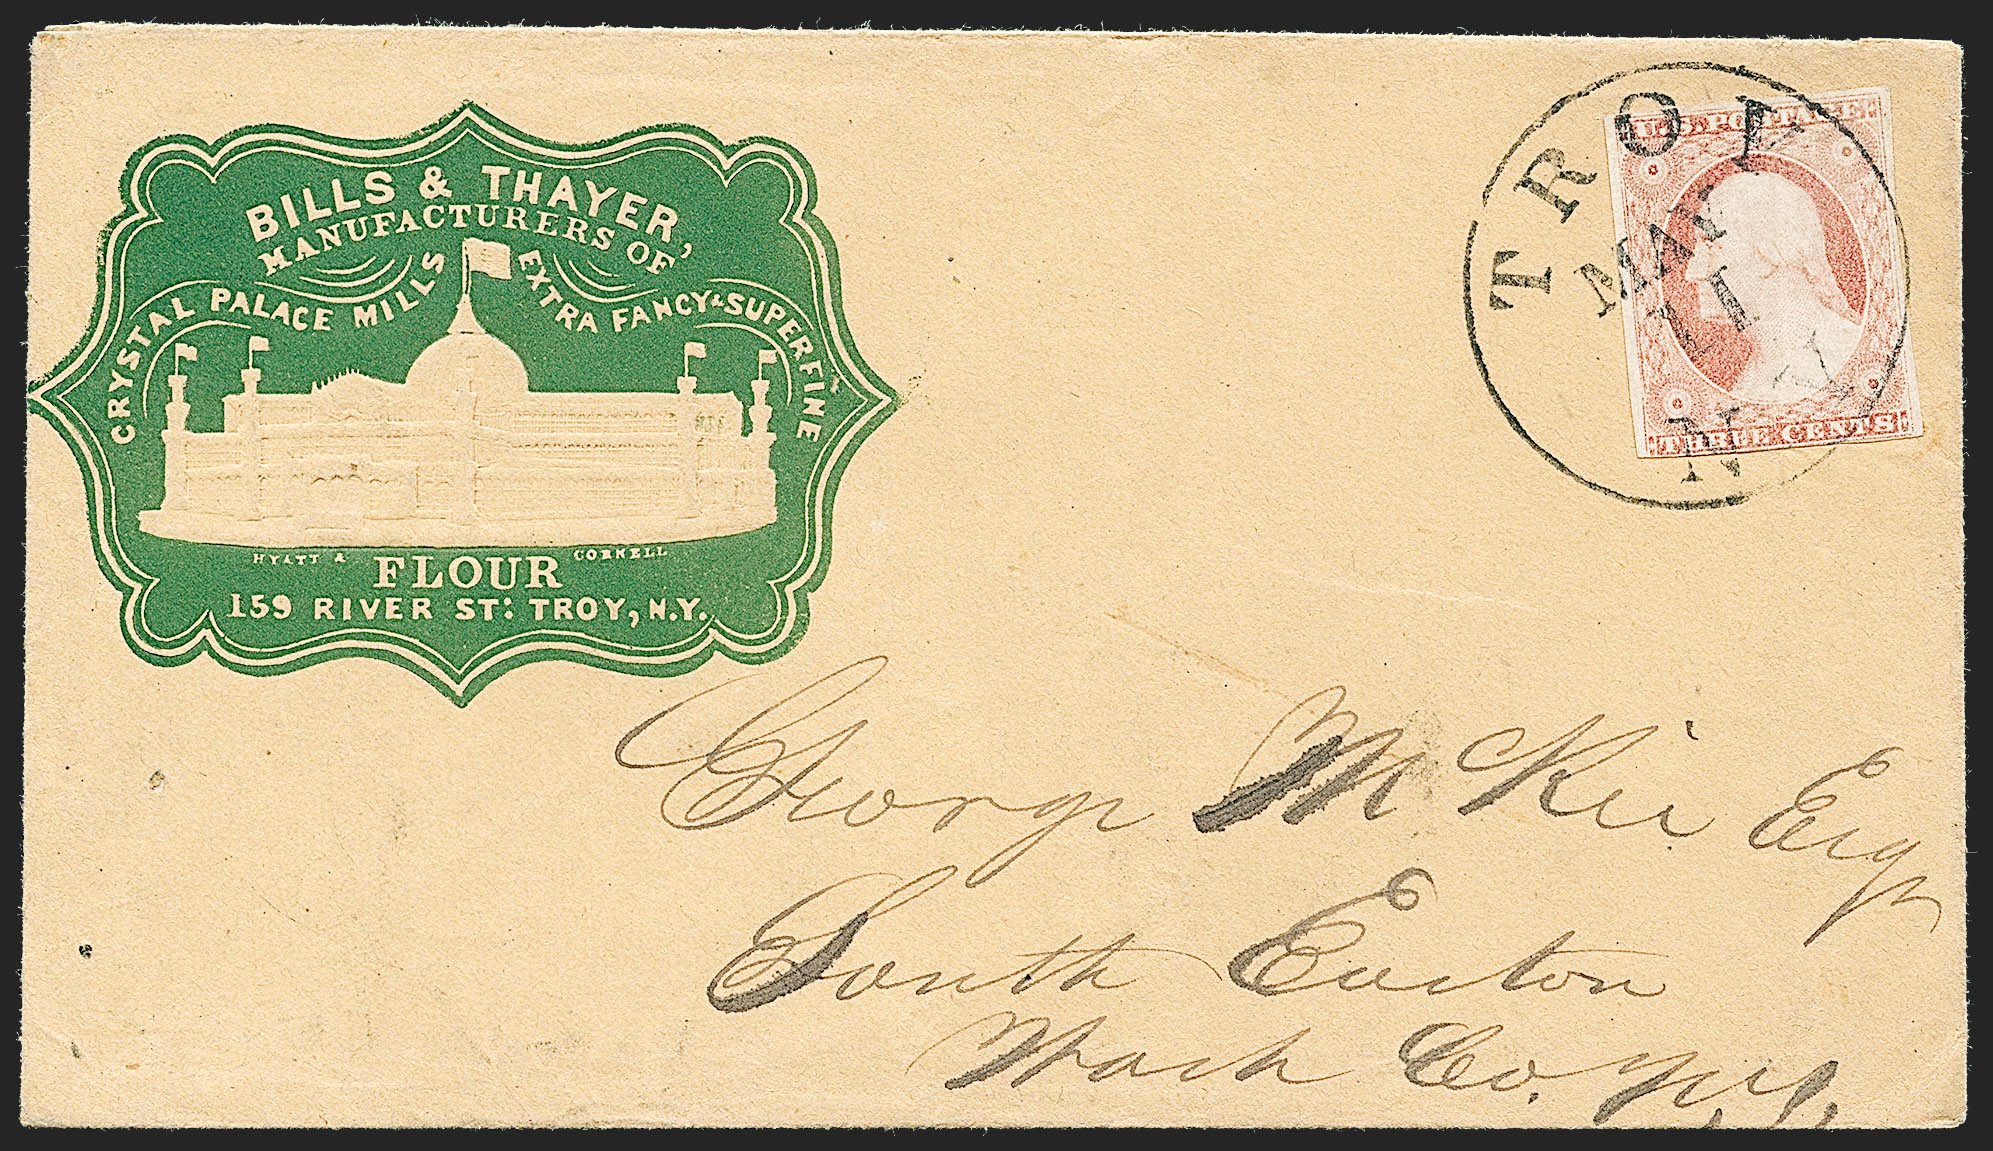 BILLS & THAYER,
MANUFACTURERS OF
CRYSTAL PALACE MILLS EXTRA FANCY & SUPERFINE
HYATT & CORNELL
FLOUR
159 RIVER ST: TROY, N.Y.
TROY
MAY
11
N Y
U.S. POSTAGE
THREE CENTS
George McKie Esq
South Easton
Wash Co. N.Y.